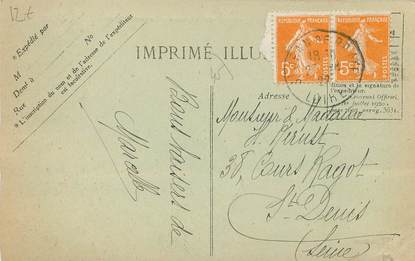 12€
Expédié par
M
Demt à
Rue
No
L'inscription du nom et de l'adresse de l'expéditeur
est facultative.
IMPRIMÉ ILLU
REPUBLIQUE FRANÇAISE
REPUBLIQUE FRANÇAISE
5c
5c
POSTES
Adresse
Nom et le signature de
l'expéditeur.
Journal Officiel
juillet 1920
Bons baisers de
Marcelle
Monsieur & Madame
H.
38, Cours Ragot
St Denis
Seine